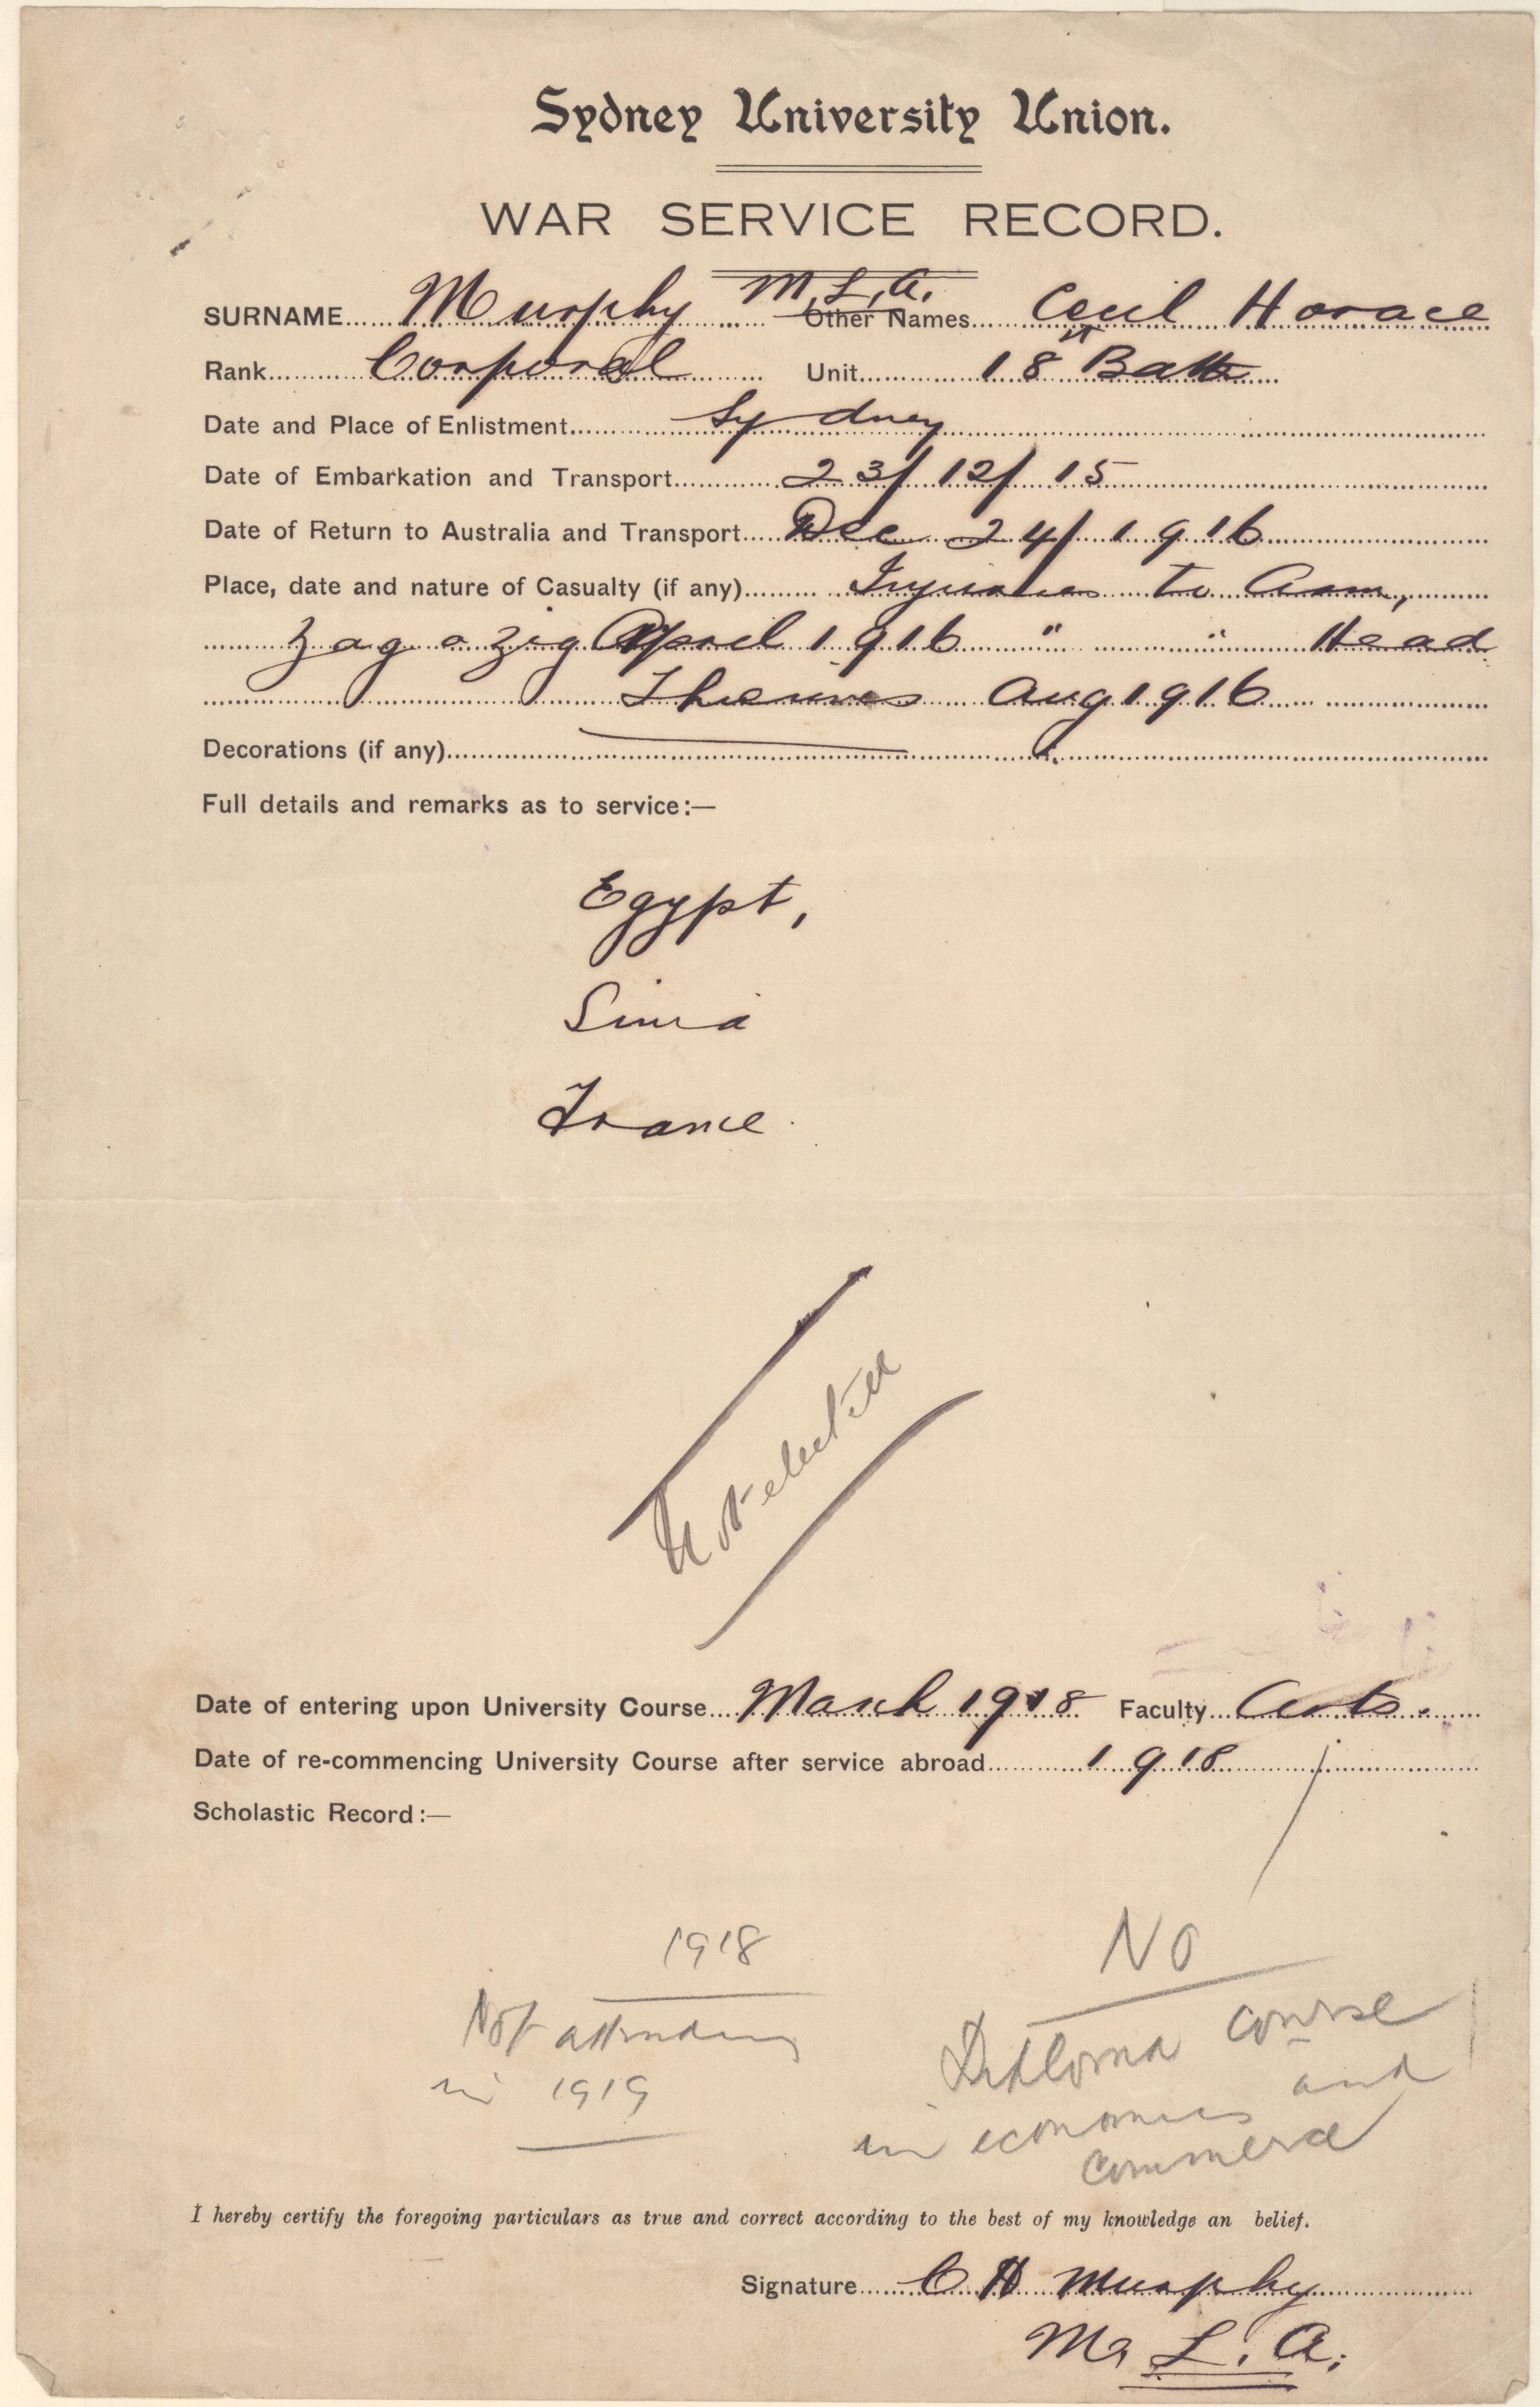 Sydney University Union.
WAR SERVICE RECORD.
SURNAME Murphy M.L.A. Other Names Cecil Horace
Rank Corporal Unit 18th Batt
Date and Place of Enlistment Sydney
Date of Embarkation and Transport 23/12/15
Date of Return to Australia and Transport Dec 24/1916
Place, date and nature of Casualty (if any) Injuries to Arm,
Zagazig April 1916 " " Head
Aug 1916
Decorations (if any)
Full details and remarks as to service:—
Egypt,
Sinia
France.
Not elected
Date of entering upon University Course March 1918 Faculty Arts.
Date of re-commencing University Course after service abroad 1918
Scholastic Record:—
1918
Not attending
in 1919
No
Diploma course
in economics and
commerce
I hereby certify the foregoing particulars as true and correct according to the best of my knowledge an belief.
Signature C H Murphy
M. L. A.